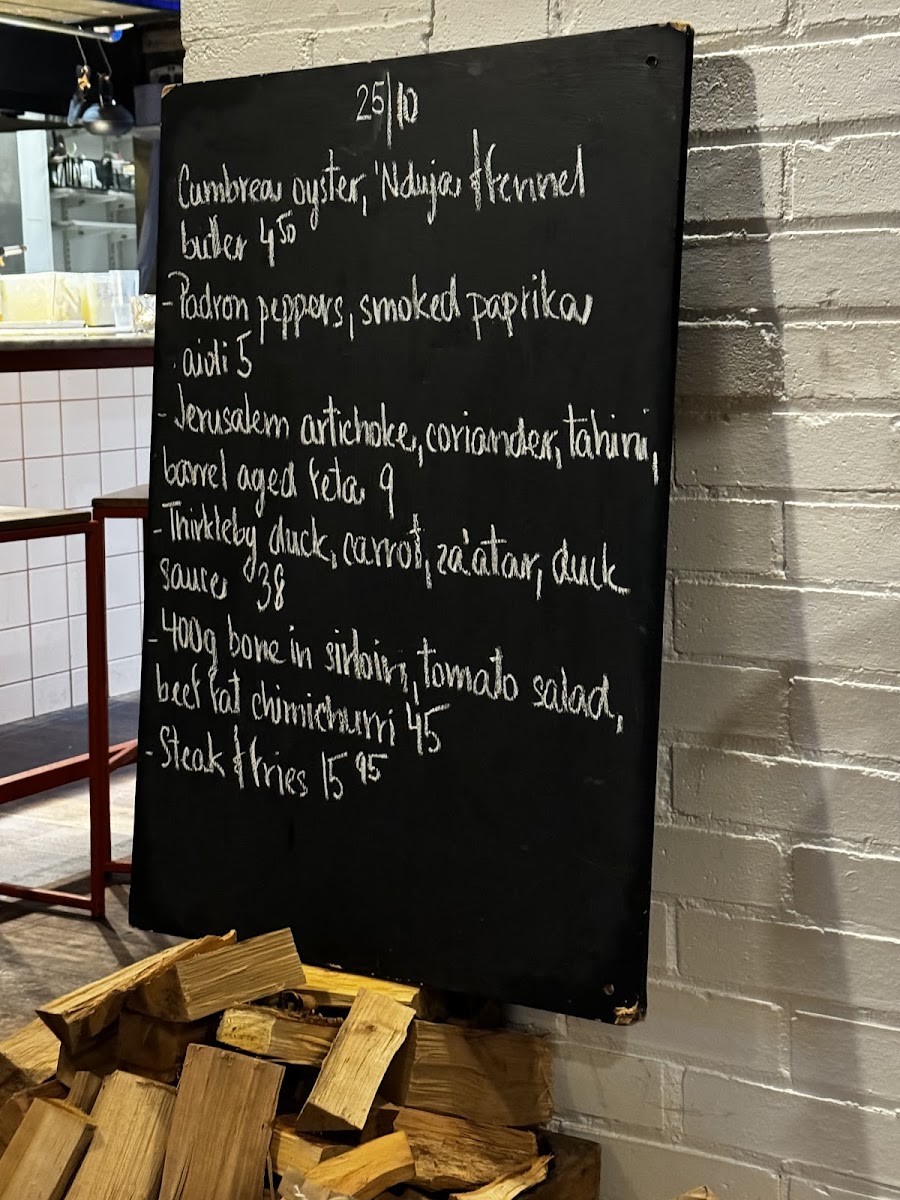 25/10
Cumbrea oyster, 'Nduja & fennel
butter 4 50
- Padron peppers, smoked paprika
aioli 5
- Jerusalem artichoke, coriander, tahini,
barrel aged feta 9
- Thirkleby duck, carrot, za'atar, duck
sauce 38
- 400g bone in sirloin, tomato salad,
beef fat chimichurri 45
- Steak & fries 15 95